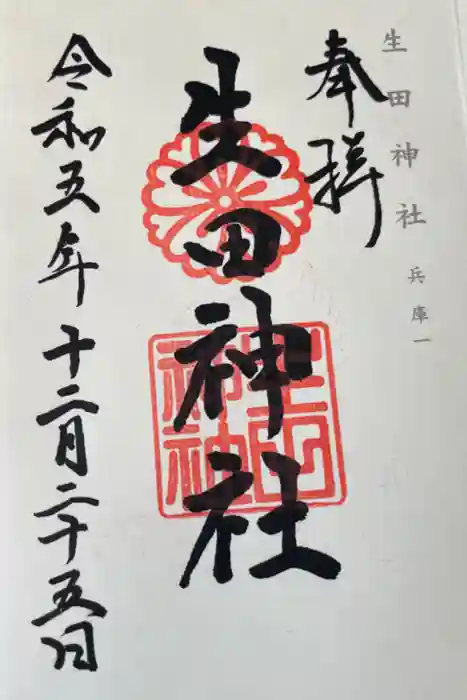 生田神社 兵庫一
奉拝
生田神社
生田神社
令和五年十二月二十五日